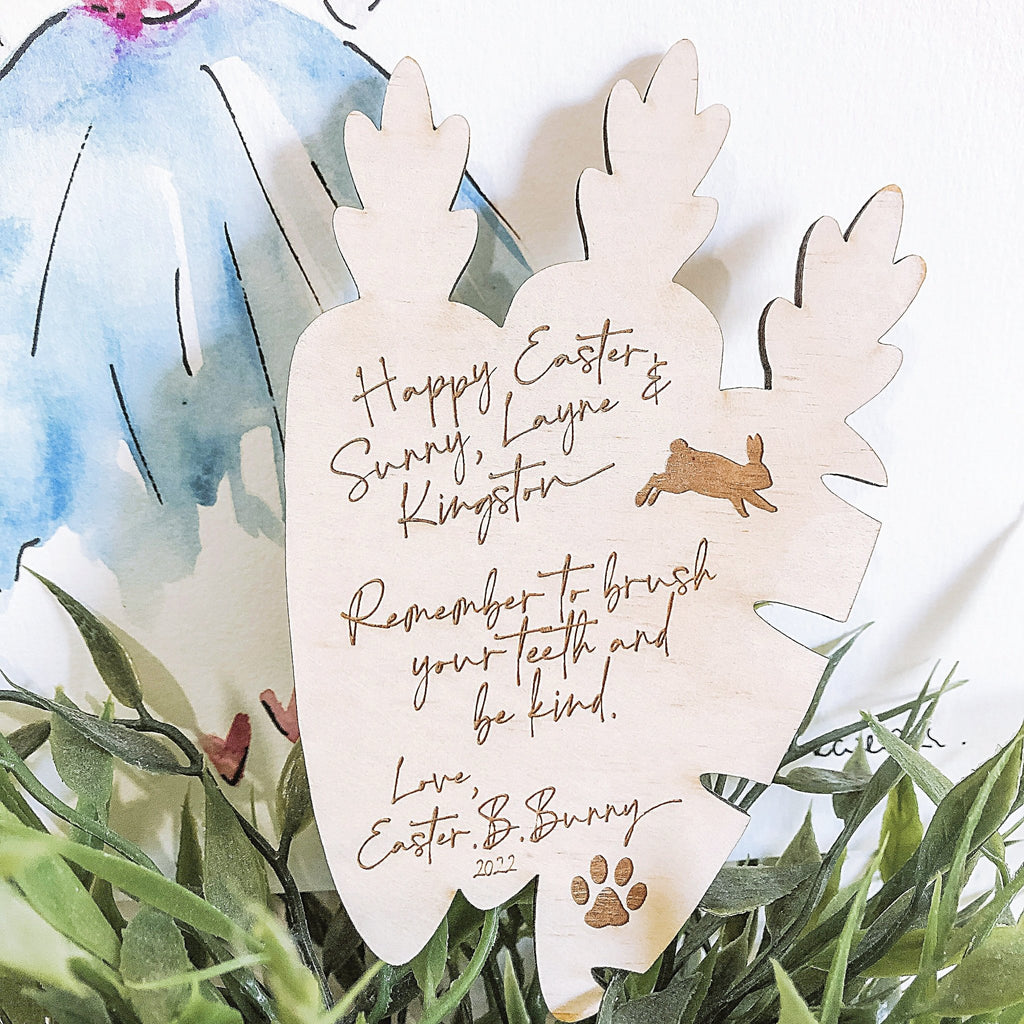 Happy Easter,
Sunny, Layne &
Kingston
Remember to brush
your teeth and
be kind.
Love,
Easter.B.Bunny
2022